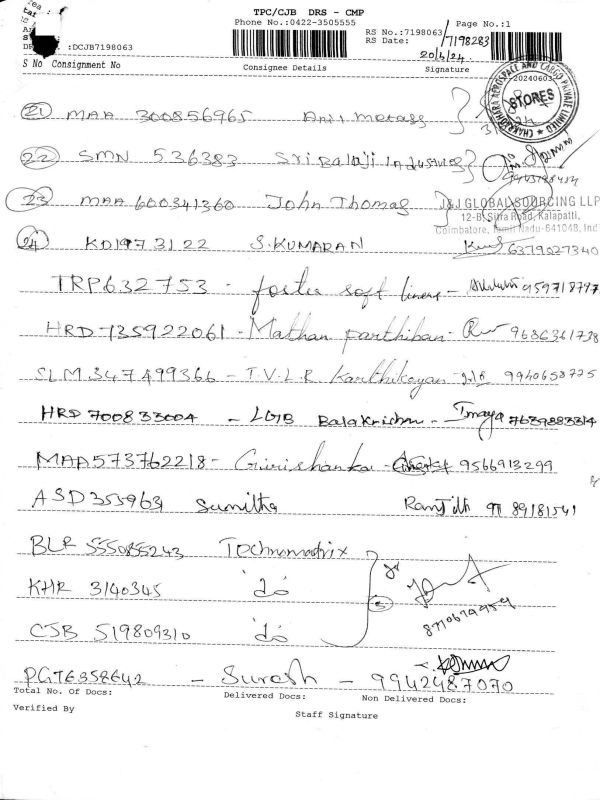 TPC/CJB DRS - CMP
Phone No.:0422-3505555
RS No.:7198063/7198283 Page No.:1
RS Date: 20/4/24
:DCJB7198063
S No Consignment No Consignee Details Signature
CHAKRADHARA AEROSPACE AND CARGO PRIVATE LIMITED
20240603
STORES
21 MAA 300856965
22 SMN 536383 Sri Balaji Industries
23 MAA 600341360 John Thomas
J&J GLOBAL SOURCING LLP
12-B, Sitra Road, Kalapatti,
Coimbatore, Tamil Nadu-641048, Ind
24 KD1973122 S.KUMARAN 6379027340
TRP632753 - foster soft linens -
HRD-135922061 - Mathan parthiban - 9686361738
SLM 347499366 - T.V.L.R Karthikeyan - 9940658725
HRD 700833004 - LGB Balakrishnan - Imaya 7639883314
MAA573762218 - Girishankar - 9566913299
ASD355963 Sumitha Ranjith 9789181541
BLR 5550855243 Technomatrix
KHR 3140345 do
CJB 519809310 do
PGT6358642 - Suresh - 9942487070
Total No. Of Docs: Delivered Docs: Non Delivered Docs:
Verified By
Staff Signature